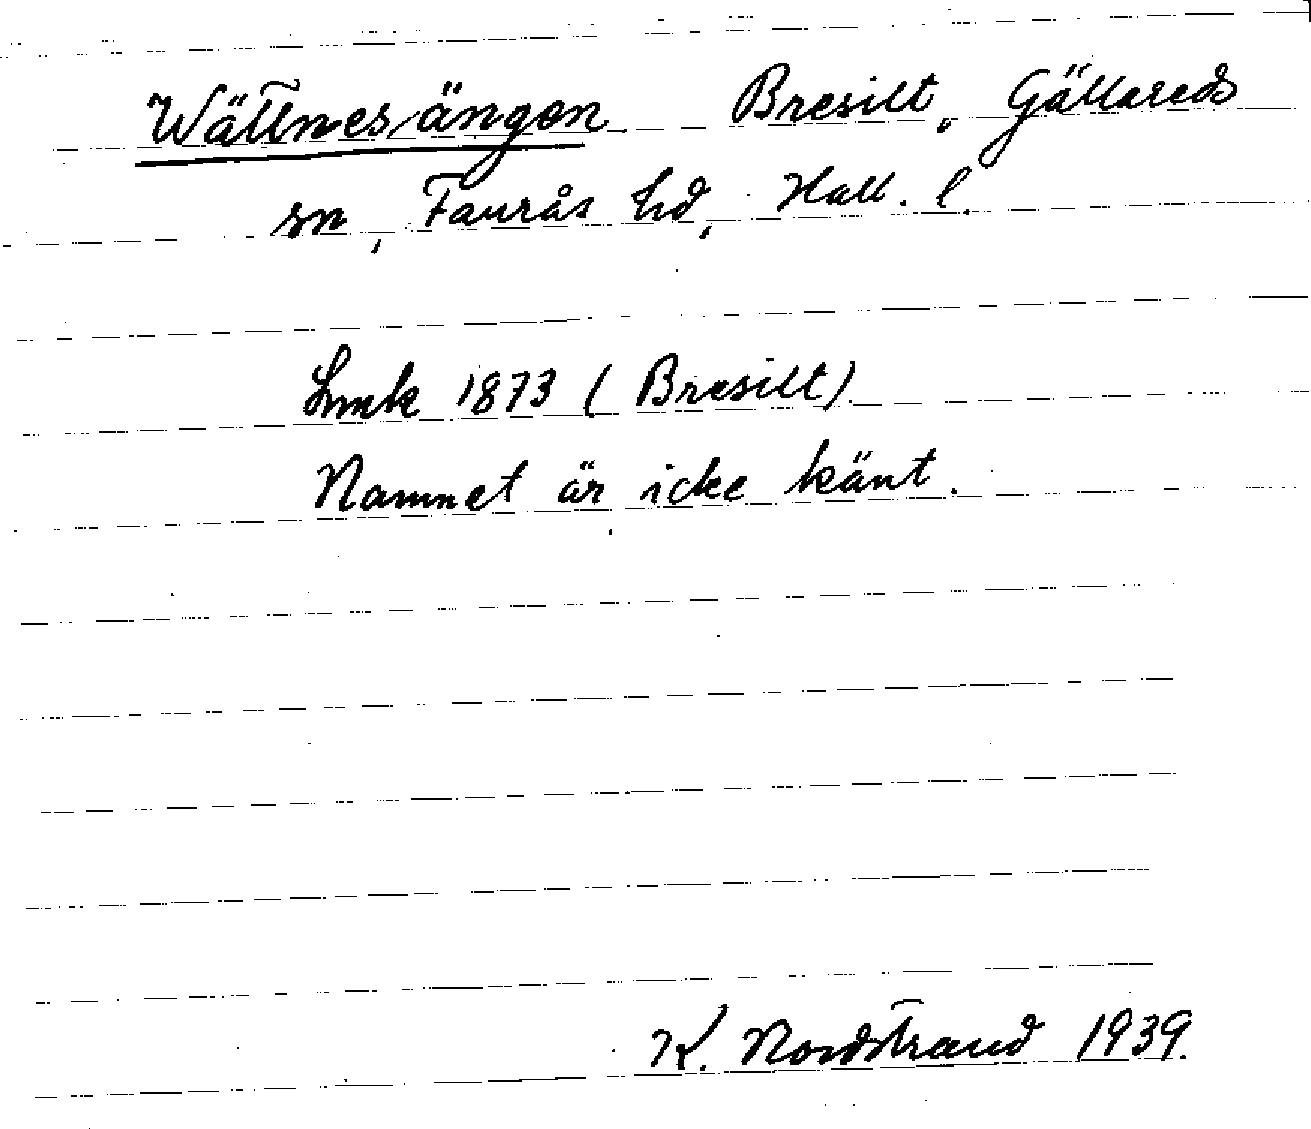 Wättnesängen Bresilt, Gällareds
sn, Faurås hd, Hall. l.
Lmk 1873 (Bresilt)
Namnet är icke känt.
K. Nordstrand 1939.